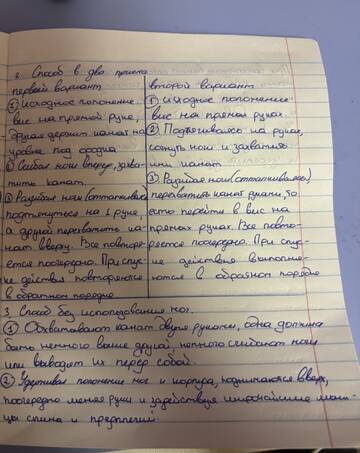 2. Способ в два приема
первый вариант
① Исходное положение
вис на прямой руке,
другая держит канат на
уровне подбородка
② Сгибая ноги вперед, захва-
тить канат
③ Разгибая ноги (отталкиваясь)
подтянуться на 1 руке,
а другой перехватить ка-
нат вверху. Все повторя-
ется поочередно. При спус-
ке действия повторяются
в обратном порядке
второй вариант
① Исходное положение
вис на прямых руках.
② Подтягиваясь на руках,
согнуть ноги и захватить
ими канат
③ Разгибая ноги (отталкиваясь),
перехватить канат руками, то
есть перейти в вис на
прямых руках. Все повто-
ряется поочередно. При спу-
ске действие выполня-
ются в обратном порядке
3. Способ без использования ног.
① Охватывают канат двумя руками, одна должна
быть немного выше другой, немного сгибают ноги
или выводят их перед собой.
② Удерживая положение ног и корпуса, поднимаются вверх,
поочередно меняя руки и задействуя широчайшие мыш-
цы спины и предплечий.